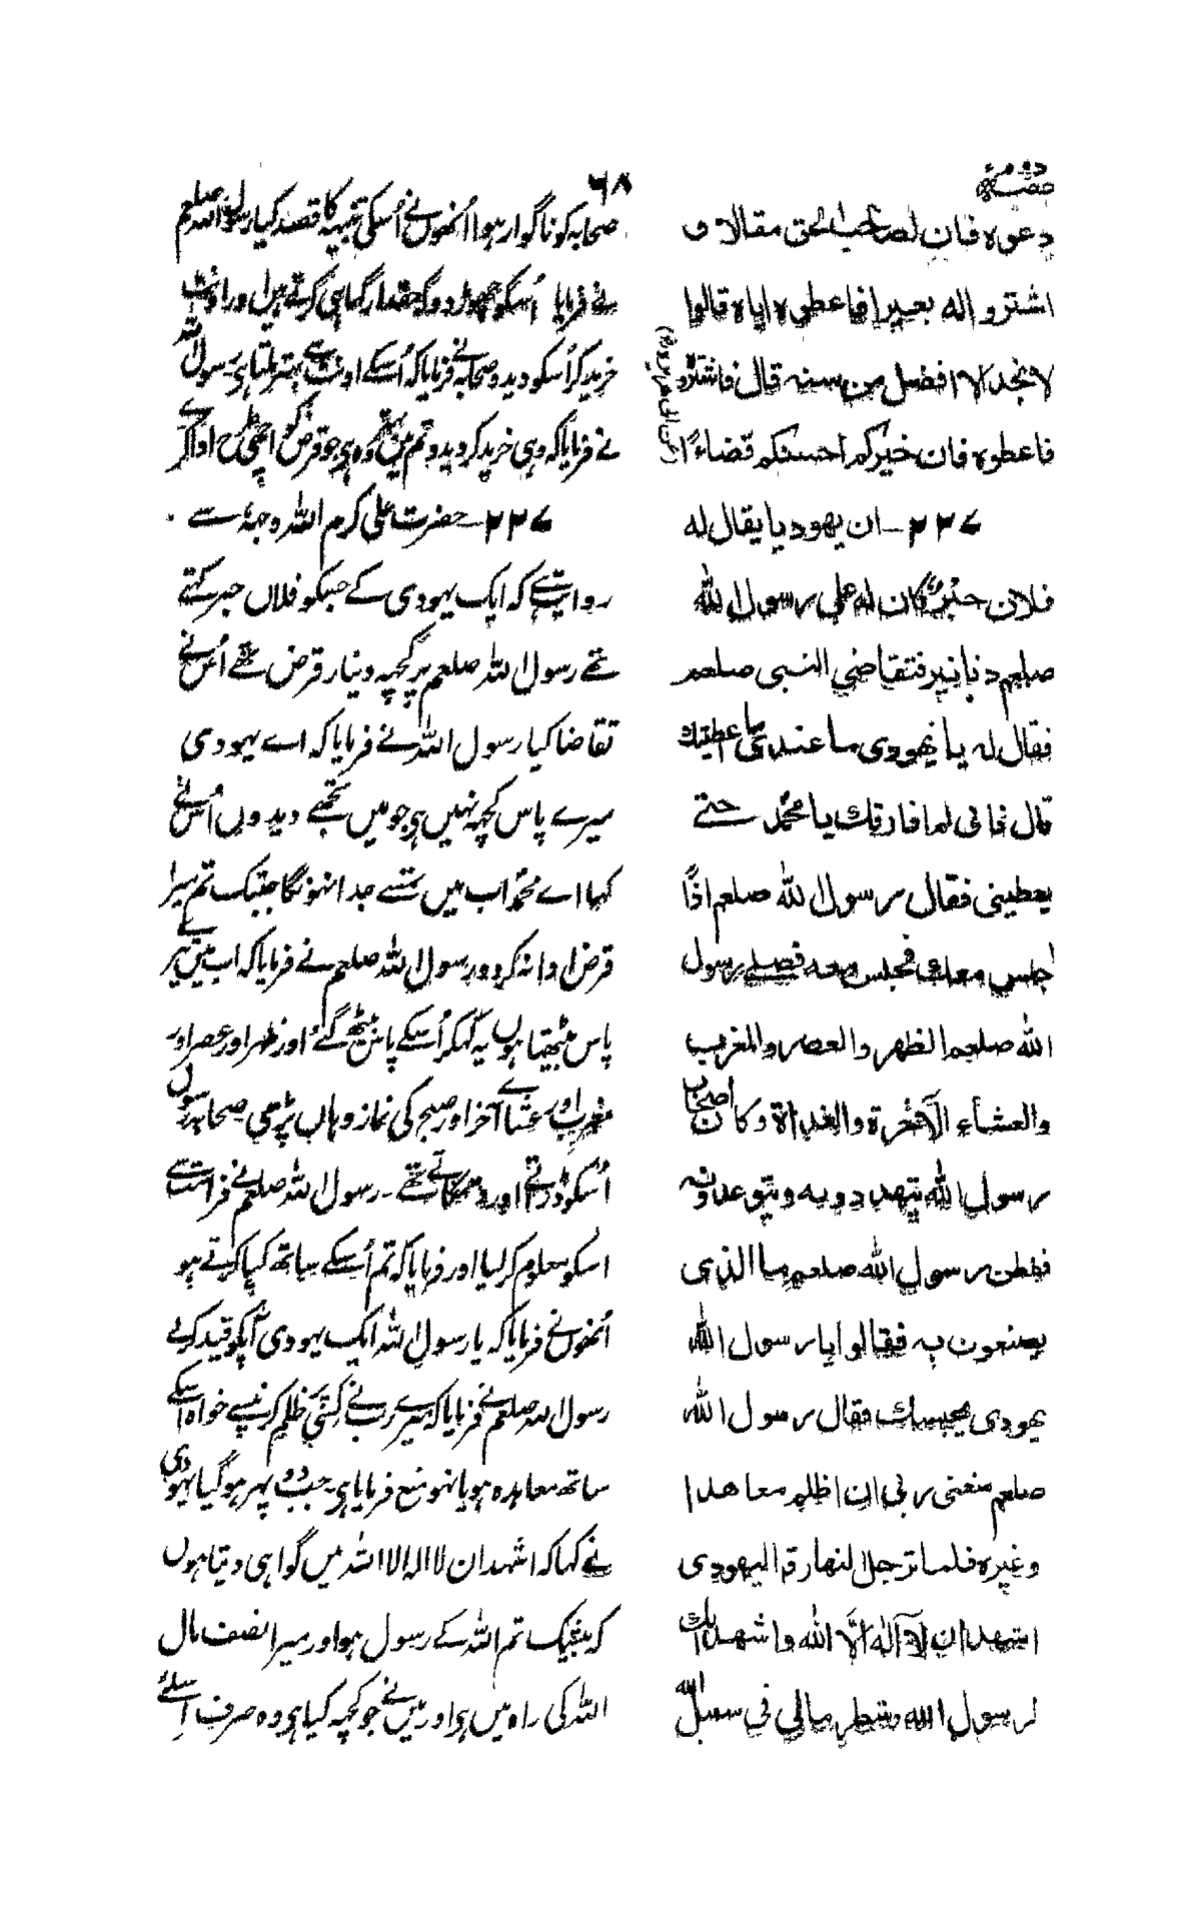 حصہ دوم
۶۸
دعوہ فان لصاحب الحق مقالا و
اشتروا لہ بعیرا فاعطوہ ایاہ قالوا
لا نجد الا افضل من سنہ قال فاشتروہ
فاعطوہ فان خیرکم احسنکم قضاءً
۲۲۷ – ان یھودیا یقال لہ
فلان حبرٌ کان لہ علی رسول اللہ
صلعم دنانیر فتقاضی النبی صلعم
فقال لہ یا یھودی ما عندی ما اعطیتک
قال فانی لا افارقک یا محمد حتے
یعطینی فقال رسول اللہ صلعم اذًا
اجلس معک فجلس معہ فصلے رسول
اللہ صلعم الظھر والعصر والمغرب
والعشاء الآخرۃ والغداۃ وکان اصحاب
رسول اللہ یتھددونہ ویتوعدونہ
ففطن رسول اللہ صلعم ما الذی
یصنعون بہ فقالوا یا رسول اللہ
یھودی یحبسک فقال رسول اللہ
صلعم منعنی ربی ان اظلم معاھدا
وغیرہ فلما ترجل النھار قال الیھودی
اشھد ان لا الٰہ الا اللہ واشھد انک
لرسول اللہ وشطر مالی فی سبیل اللہ
صحابہ کو ناگوار ہوا اُنھوں نے اُسکی تنبیہ کا قصد کیا رسول اللہ صلعم
نے فرمایا اُسکو چھوڑ دو کہ حقدار کہا ہی کرتے ہیں اور اونٹ
خرید کر اُسکو دیدو صحابہ نے فرمایا کہ اُسکے اونٹ سے بہتر ملتا ہی رسول اللہ
نے فرمایا کہ وہی خرید کر دیدو تم میں بہتر وہ ہی جو قرض کو اچھی طرح ادا کرے
۲۲۷ – حضرت علی کرم اللہ وجہہ سے
روایت ہے کہ ایک یہودی کے جسکو فلاں حبر کہتے
تھے رسول اللہ صلعم پر کچھہ دینار قرض تھے اُس نے
تقاضا کیا رسول اللہ نے فرمایا کہ اے یہودی
میرے پاس کچہہ نہیں ہی جو میں تجھے دیدوں اُس نے
کہا اے محمدؐ اب میں تمسے جدا نہونگا جبتک تم میرا
قرض ادا نہ کردو رسول اللہ صلعم نے فرمایا کہ اب میں تیرے
پاس بیٹھتا ہوں یہ کہکر اُسکے پاس بیٹھ گئے اور ظہر اور عصر اور
مغرب اور عشاے آخر اور صبح کی نماز وہاں پڑھی صحابہ رسول
اُسکو ڈرتے اور دھمکاتے تھے۔ رسول اللہ صلعم نے فراست سے
اسکو معلوم کر لیا اور فرمایا کہ تم اُسکے ساتھ کیا کرتے ہو
اُنھوں نے فرمایا کہ یا رسول اللہ ایک یہودی آپکو قید کرے
رسول اللہ صلعم نے فرمایا کہ میرے رب نے کسی پر ظلم کرنیسے خواہ اسکے
ساتھ معاہدہ ہو یا نہو منع فرمایا ہی جب دو پہر ہو گیا یہودی
نے کہا کہ اشہد ان لا الہ الا اللہ میں گواہی دیتا ہوں
کہ بیشک تم اللہ کے رسول ہو اور میرا نصف مال
اللہ کی راہ میں ہی اور میں نے جو کچہہ کیا ہی وہ صرف اسلئے